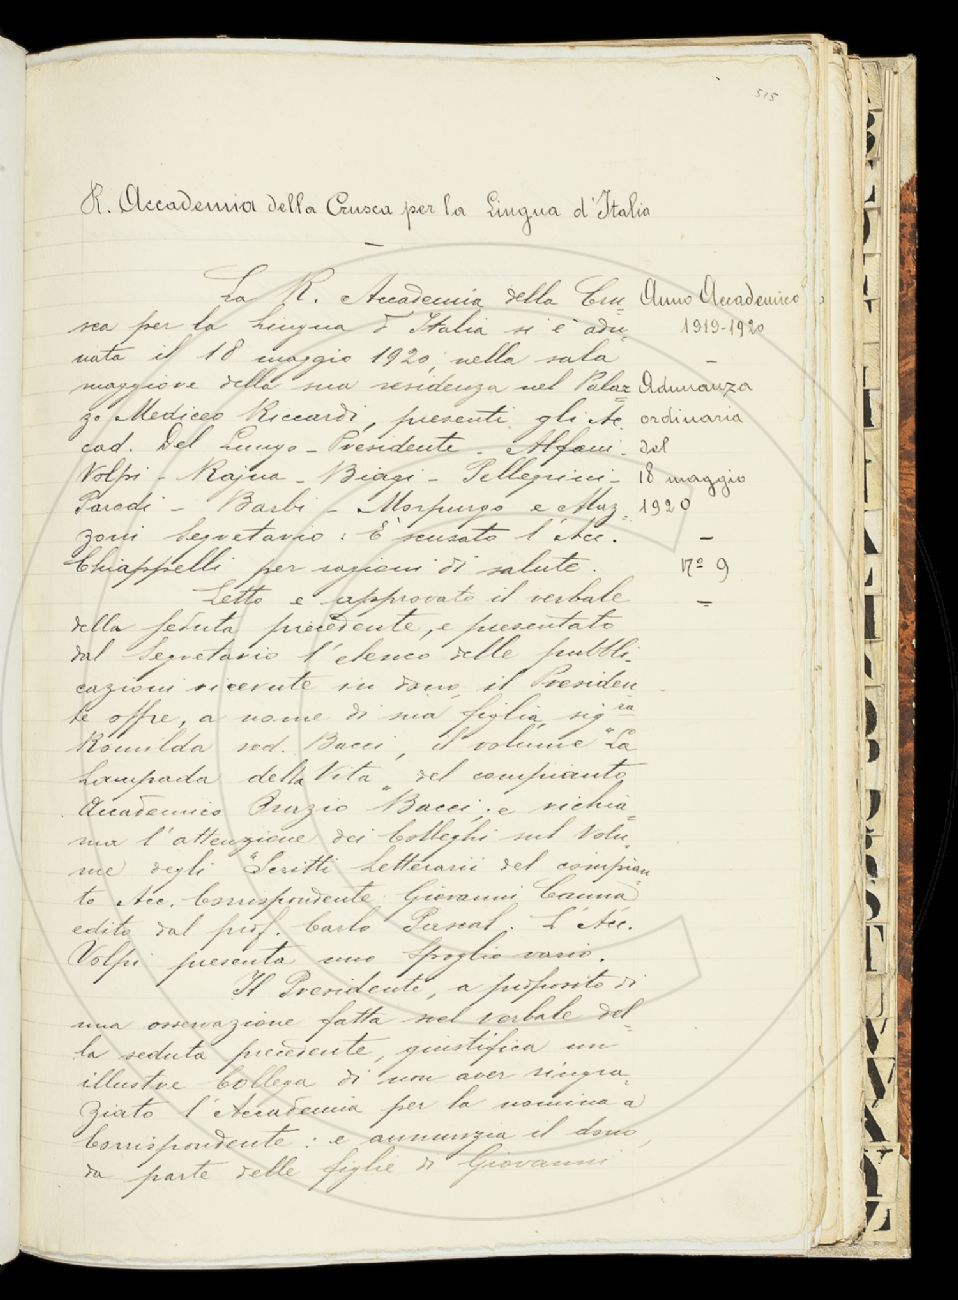 515
R. Accademia della Crusca per la Lingua d'Italia
La R. Accademia della Cru=
sca per la Lingua d'Italia si è adu=
nata il 18 maggio 1920, nella sala
maggiore della sua residenza nel Palaz=
zo Mediceo Riccardi, presenti gli Ac=
cad. Del Lungo - Presidente - Alfani -
Volpi - Rajna - Biagi - Pellegrini -
Parodi - Barbi - Morpurgo e Maz=
zoni Segretario: È scusato l'Acc.
Chiappelli per ragioni di salute.
Letto e approvato il verbale
della seduta precedente, e presentato
dal Segretario l'elenco delle pubbli-
cazioni ricevute in dono, il Presiden
te offre, a nome di sua figlia, sig.ra
Romilda ved. Bacci, il volume "La
Lampada della Vita", del compianto
Accademico Orazio Bacci; e richia=
ma l'attenzione dei Colleghi sul Volu=
me degli "Scritti Letterarii del compian
to Acc. Corrispondente Giovanni Canna"
edito dal prof. Carlo Pascal. L'Acc.
Volpi presenta uno Spoglio vario.
Il Presidente, a proposito di
una osservazione fatta nel verbale del=
la seduta precedente, giustifica un
illustre Collega di non aver ringra=
ziato l'Accademia per la nomina a
Corrispondente: e annunzia il dono,
da parte delle figlie di Giovanni
Anno Accademico
1919-1920
Adunanza
ordinaria
del
18 maggio
1920
N.º 9